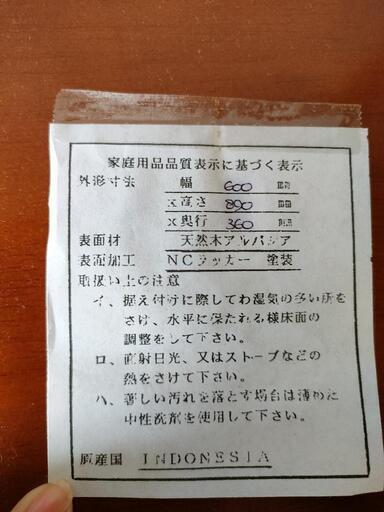 家庭用品品質表示に基づく表示
外形寸法 幅 600 mm
×高さ 890 mm
×奥行 360 mm
表面材 天然木アルバシア
表面加工 NCラッカー 塗装
取扱い上の注意
イ、据え付けに際してわ湿気の多い所を
さけ、水平に保たれる様床面の
調整をして下さい。
ロ、直射日光、又はストーブなどの
熱をさけて下さい。
ハ、著しい汚れを落とす場合は薄めた
中性洗剤を使用して下さい。
原産国 INDONESIA